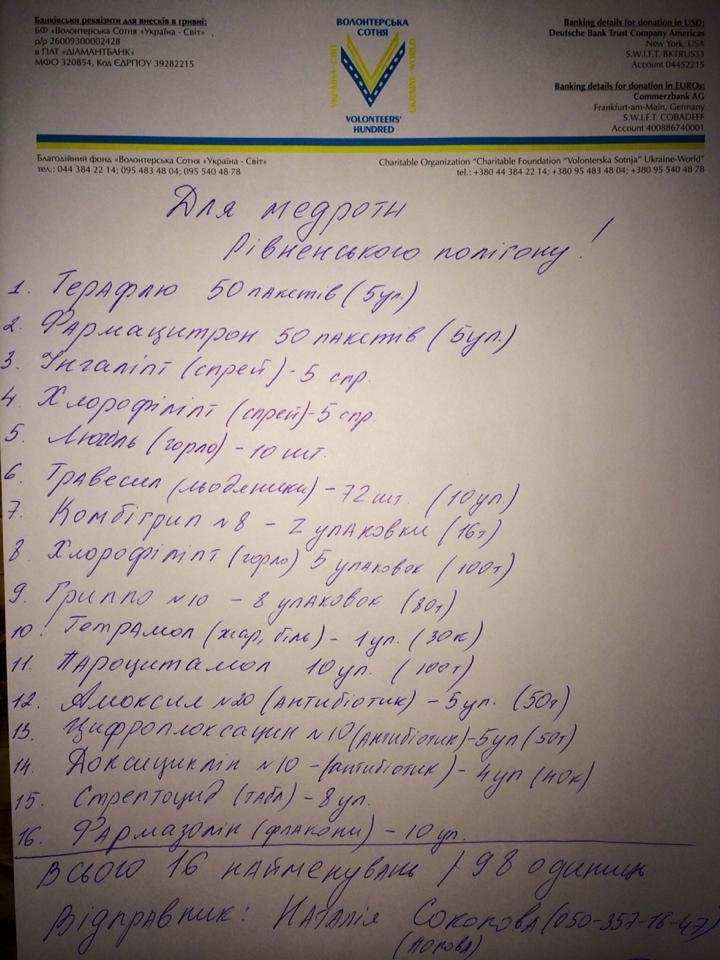 Банківськи реквізити для внесків в гривні:
БФ «Волонтерська Сотня «Україна - Світ»
р/р 26009300002428
в ПАТ «ДІАМАНТБАНК»
МФО 320854, Код ЄДРПОУ 39282215
ВОЛОНТЕРСЬКА
СОТНЯ
УКРАЇНА-СВІТ
UKRAINE-WORLD
VOLONTEERS'
HUNDRED
Banking details for donation in USD:
Deutsche Bank Trust Company Americas
New York, USA
S.W.I.F.T. BKTRUS33
Account 04452215
Banking details for donation in EUROs:
Commerzbank AG
Frankfurt-am-Main, Germany
S.W.I.F.T. COBADEFF
Account 400886740001
Благодійний фонд «Волонтерська Сотня «Україна - Світ»
тел.: 044 384 22 14; 095 483 48 04; 095 540 48 78
Charitable Organization "Charitable Foundation "Volonterska Sotnja" Ukraine-World"
tel.: +380 44 384 22 14; +380 95 483 48 04; +380 95 540 48 78
Для медроти
Рівненського полігону!
1. Терафлю 50 пакетів (5уп.)
2. Фармацитрон 50 пакетів (5уп.)
3. Інгаліпт (спрей) - 5 спр.
4. Хлорофіліпт (спрей) - 5 спр.
5. (горло) - 10 шт.
6. Травесил (льодяники) - 72 шт. (10уп)
7. Комбігрип №8 - 2 упаковки (16т)
8. Хлорофіліпт (горло) 5 упаковок (100т)
9. Гриппо №10 - 8 упаковок (80т)
10. Тетрамол (жар, біль) - 1уп. (30к)
11. Пароцитамол 10уп. (100т)
12. Амоксил №20 (антибіотик) - 5уп. (50т)
13. Цифроплоксацин №10 (антибіотик) - 5уп (50т)
14. Доксициклін №10 - (антибіотик) - 4уп (40к)
15. Стрептоцид (табл) - 8уп.
16. Фармазолін (флакони) - 10 уп.
Всього 16 найменувань / 98 одиниць
Відправник: Наталія Соколова (050-357-16-47)
(Попова)